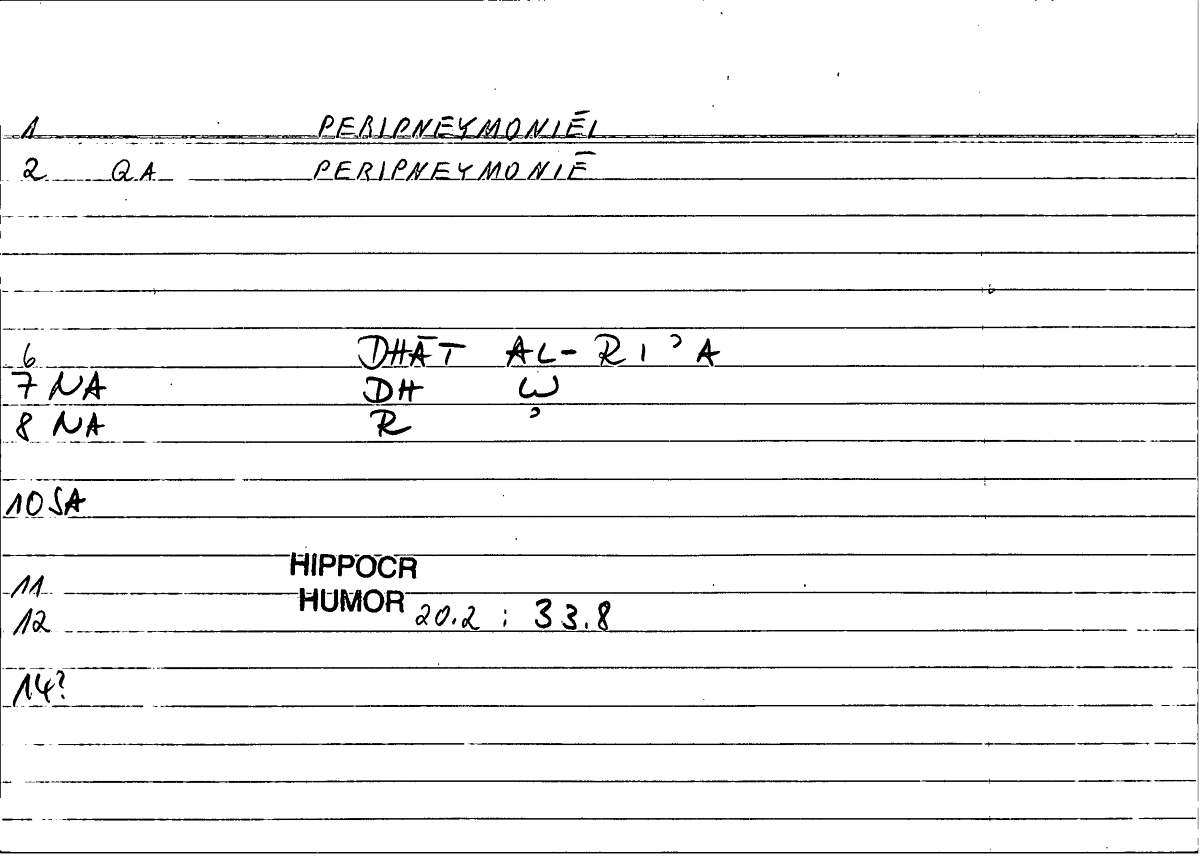 1 PERIPNEYMONIĒI
2 QA PERIPNEYMONIĒ
6 DHĀT AL-RIʾA
7 NA DH W
8 NA R ʾ
10 SA
HIPPOCR
11
HUMOR
12 20.2 : 33.8
14?